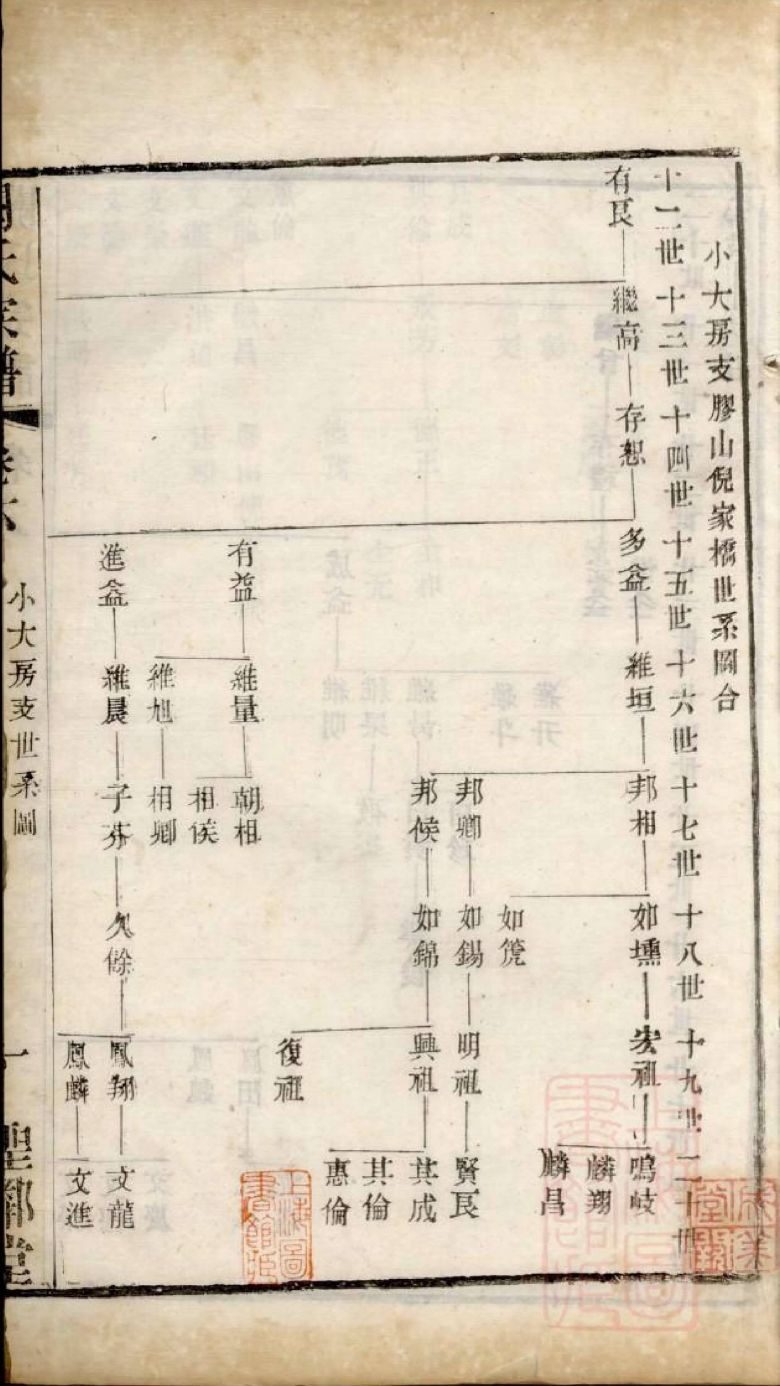 小大房支膠山倪家橋世系圖台
十二世 十三世 十四世 十五世 十六世 十七世 十八世 十九世 二十世
有良 繼高 存恕 多益 維垣 邦相 如壎 宏祖 鳴岐
麟翔
麟昌
如箎
邦卿 如錫 明祖 賢良
邦俟 如錦 興祖 其成
其倫
惠倫
復祖
有益 維量 朝相
相俟
維旭 相卿
進益 維晨 子芬 久餘 鳳翔 文龍
鳳麟 文進
氏宗譜 卷六 小大房支世系圖 一
上海圖書館藏